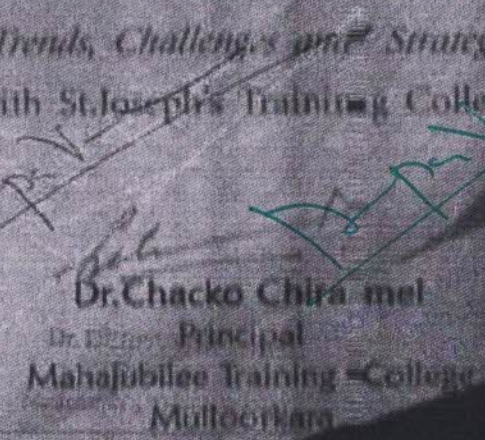 Trends, Challenges and Strateg
ith St.Joseph's Training Colle
Dr.Chacko Chira mel
Principal
Mahajubilee Training College
Mulloorkara